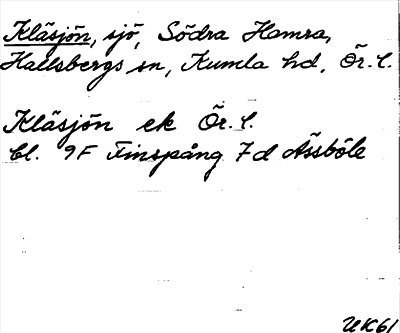 Kläsjön, sjö, Södra Hamra,
Hallsbergs sn, Kumla hd, Ör. l.
Kläsjön ek Ör. l.
bl. 9F Finspång 7d Åsböle
UK61